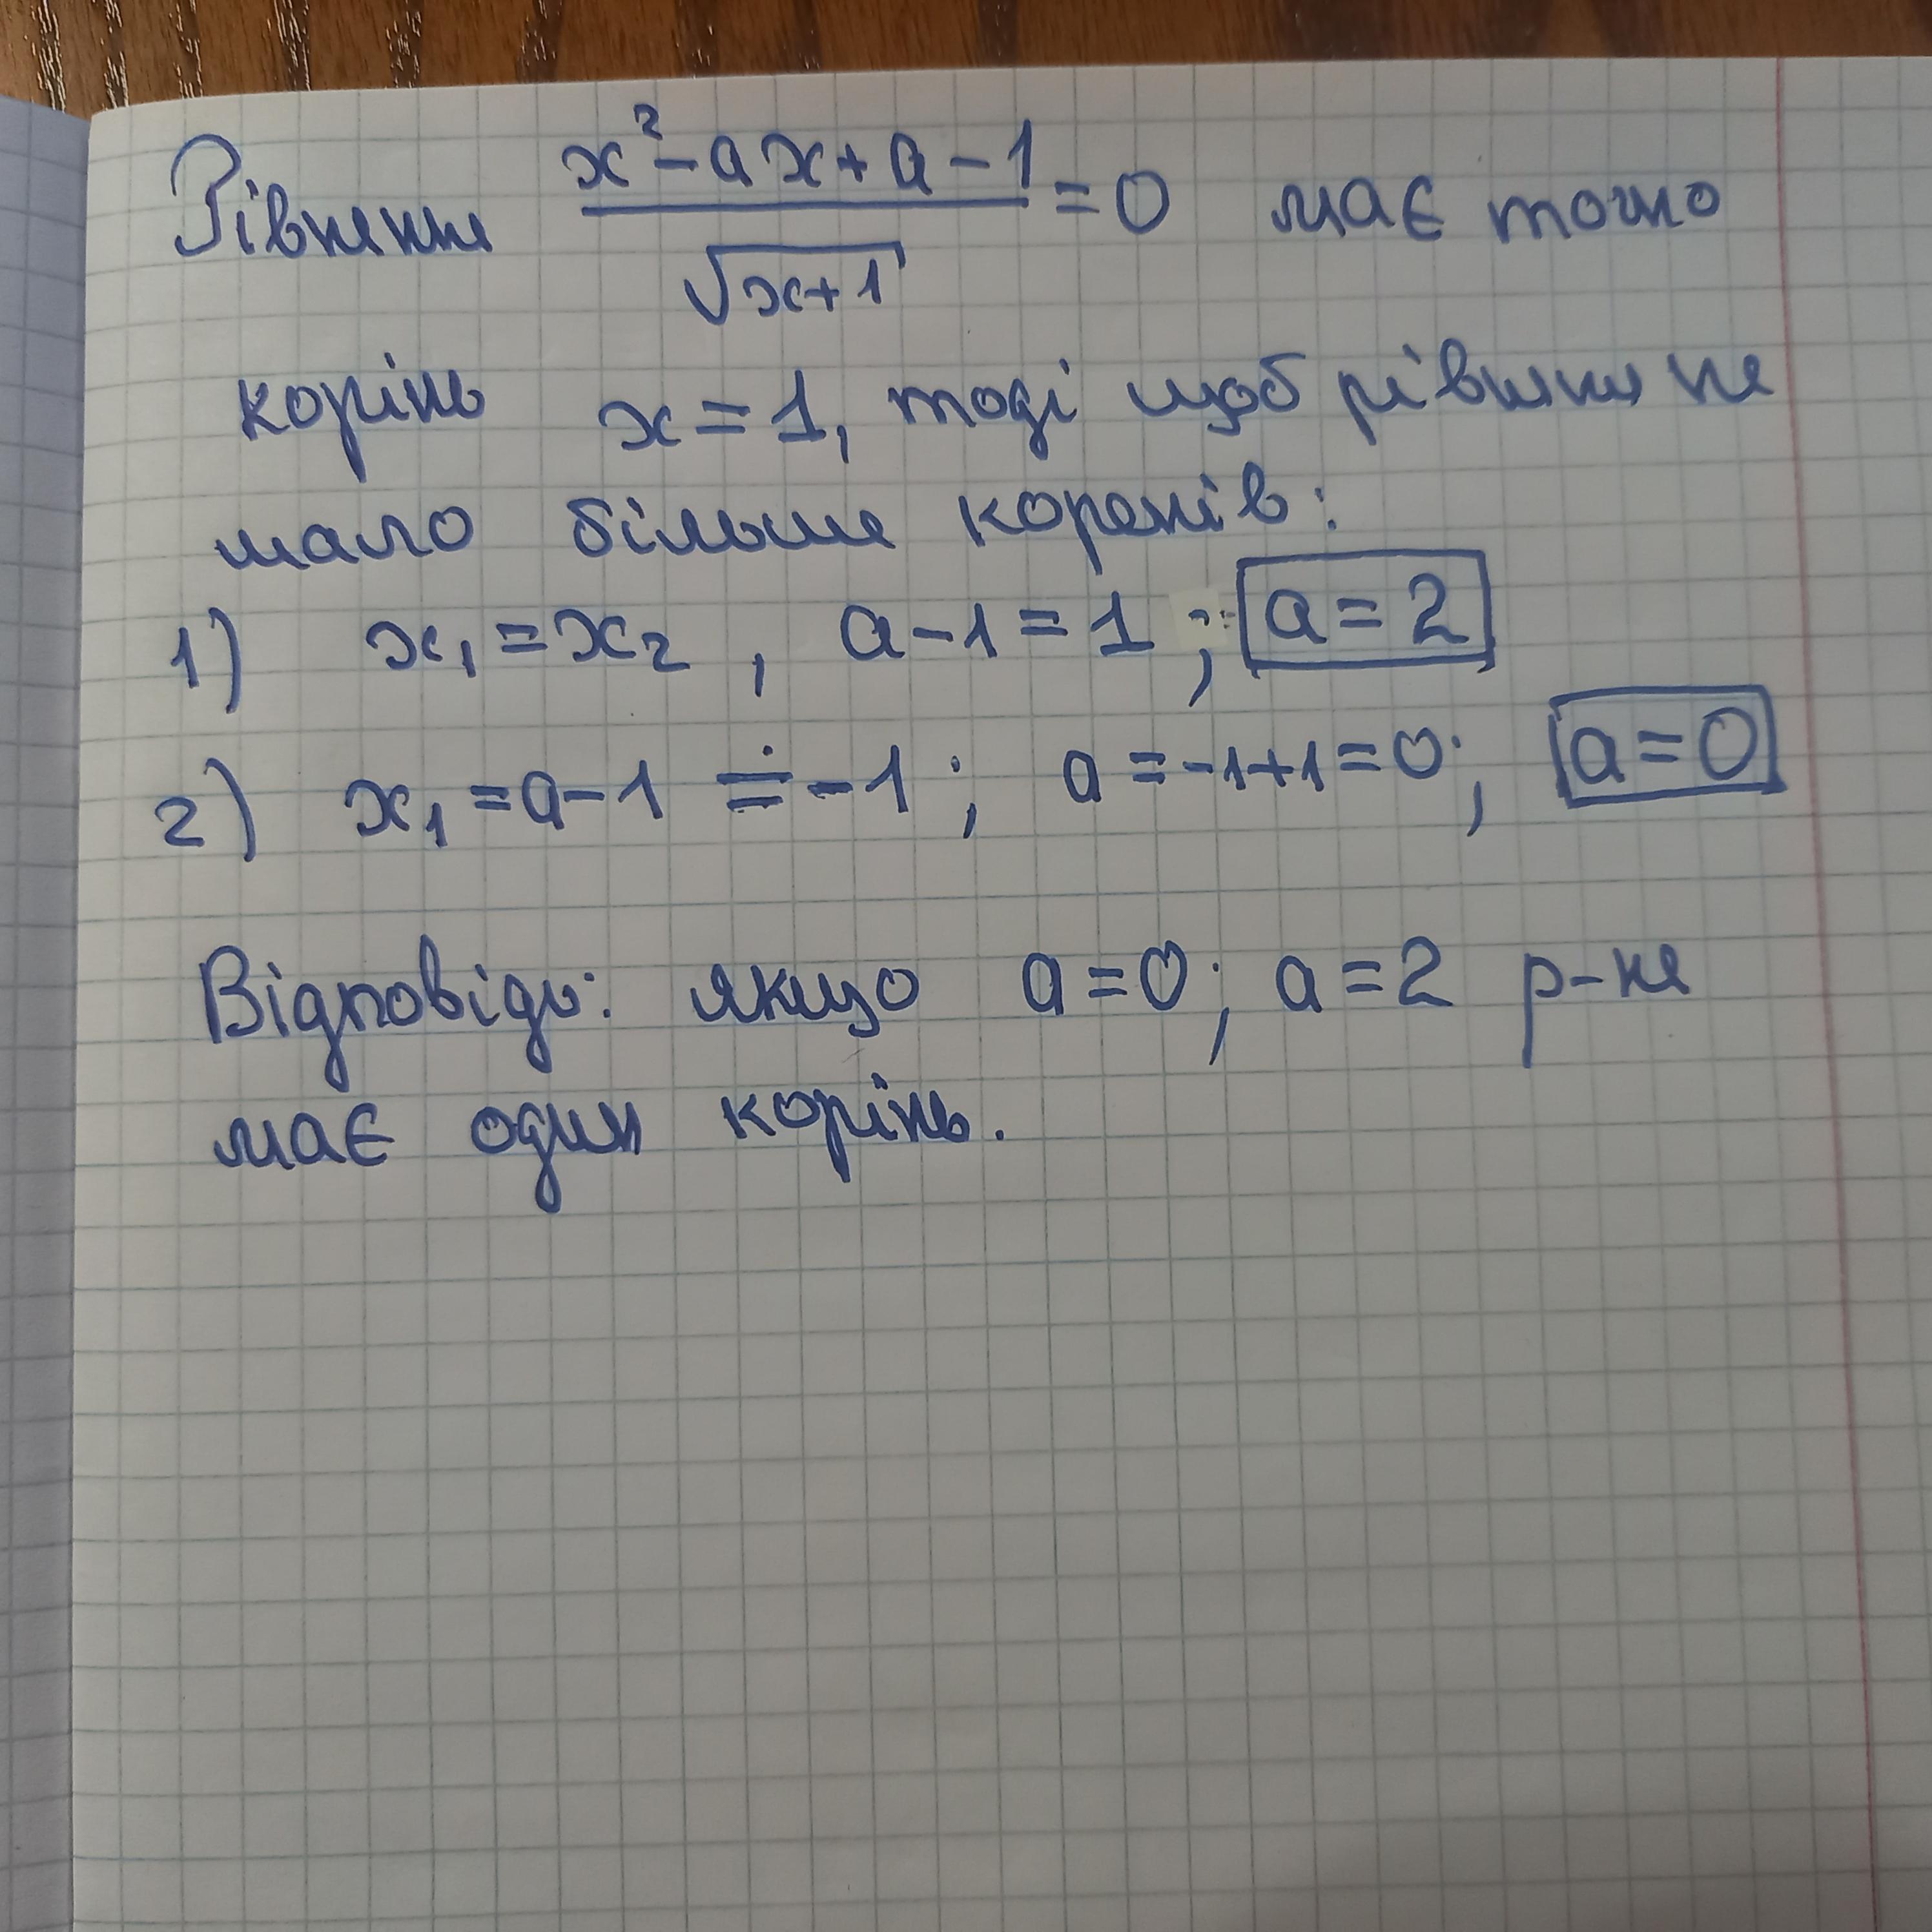 Рівняння \frac{x^2 - ax + a - 1}{\sqrt{x+1}} = 0 має точно
корінь x = 1, тоді щоб рівняння не
мало більше коренів:
1) x₁ = x₂ , a - 1 = 1 ; a = 2
2) x₁ = a - 1 = -1 ; a = -1 + 1 = 0 ; a = 0
Відповідь: якщо a = 0 ; a = 2 р-ня
має один корінь.